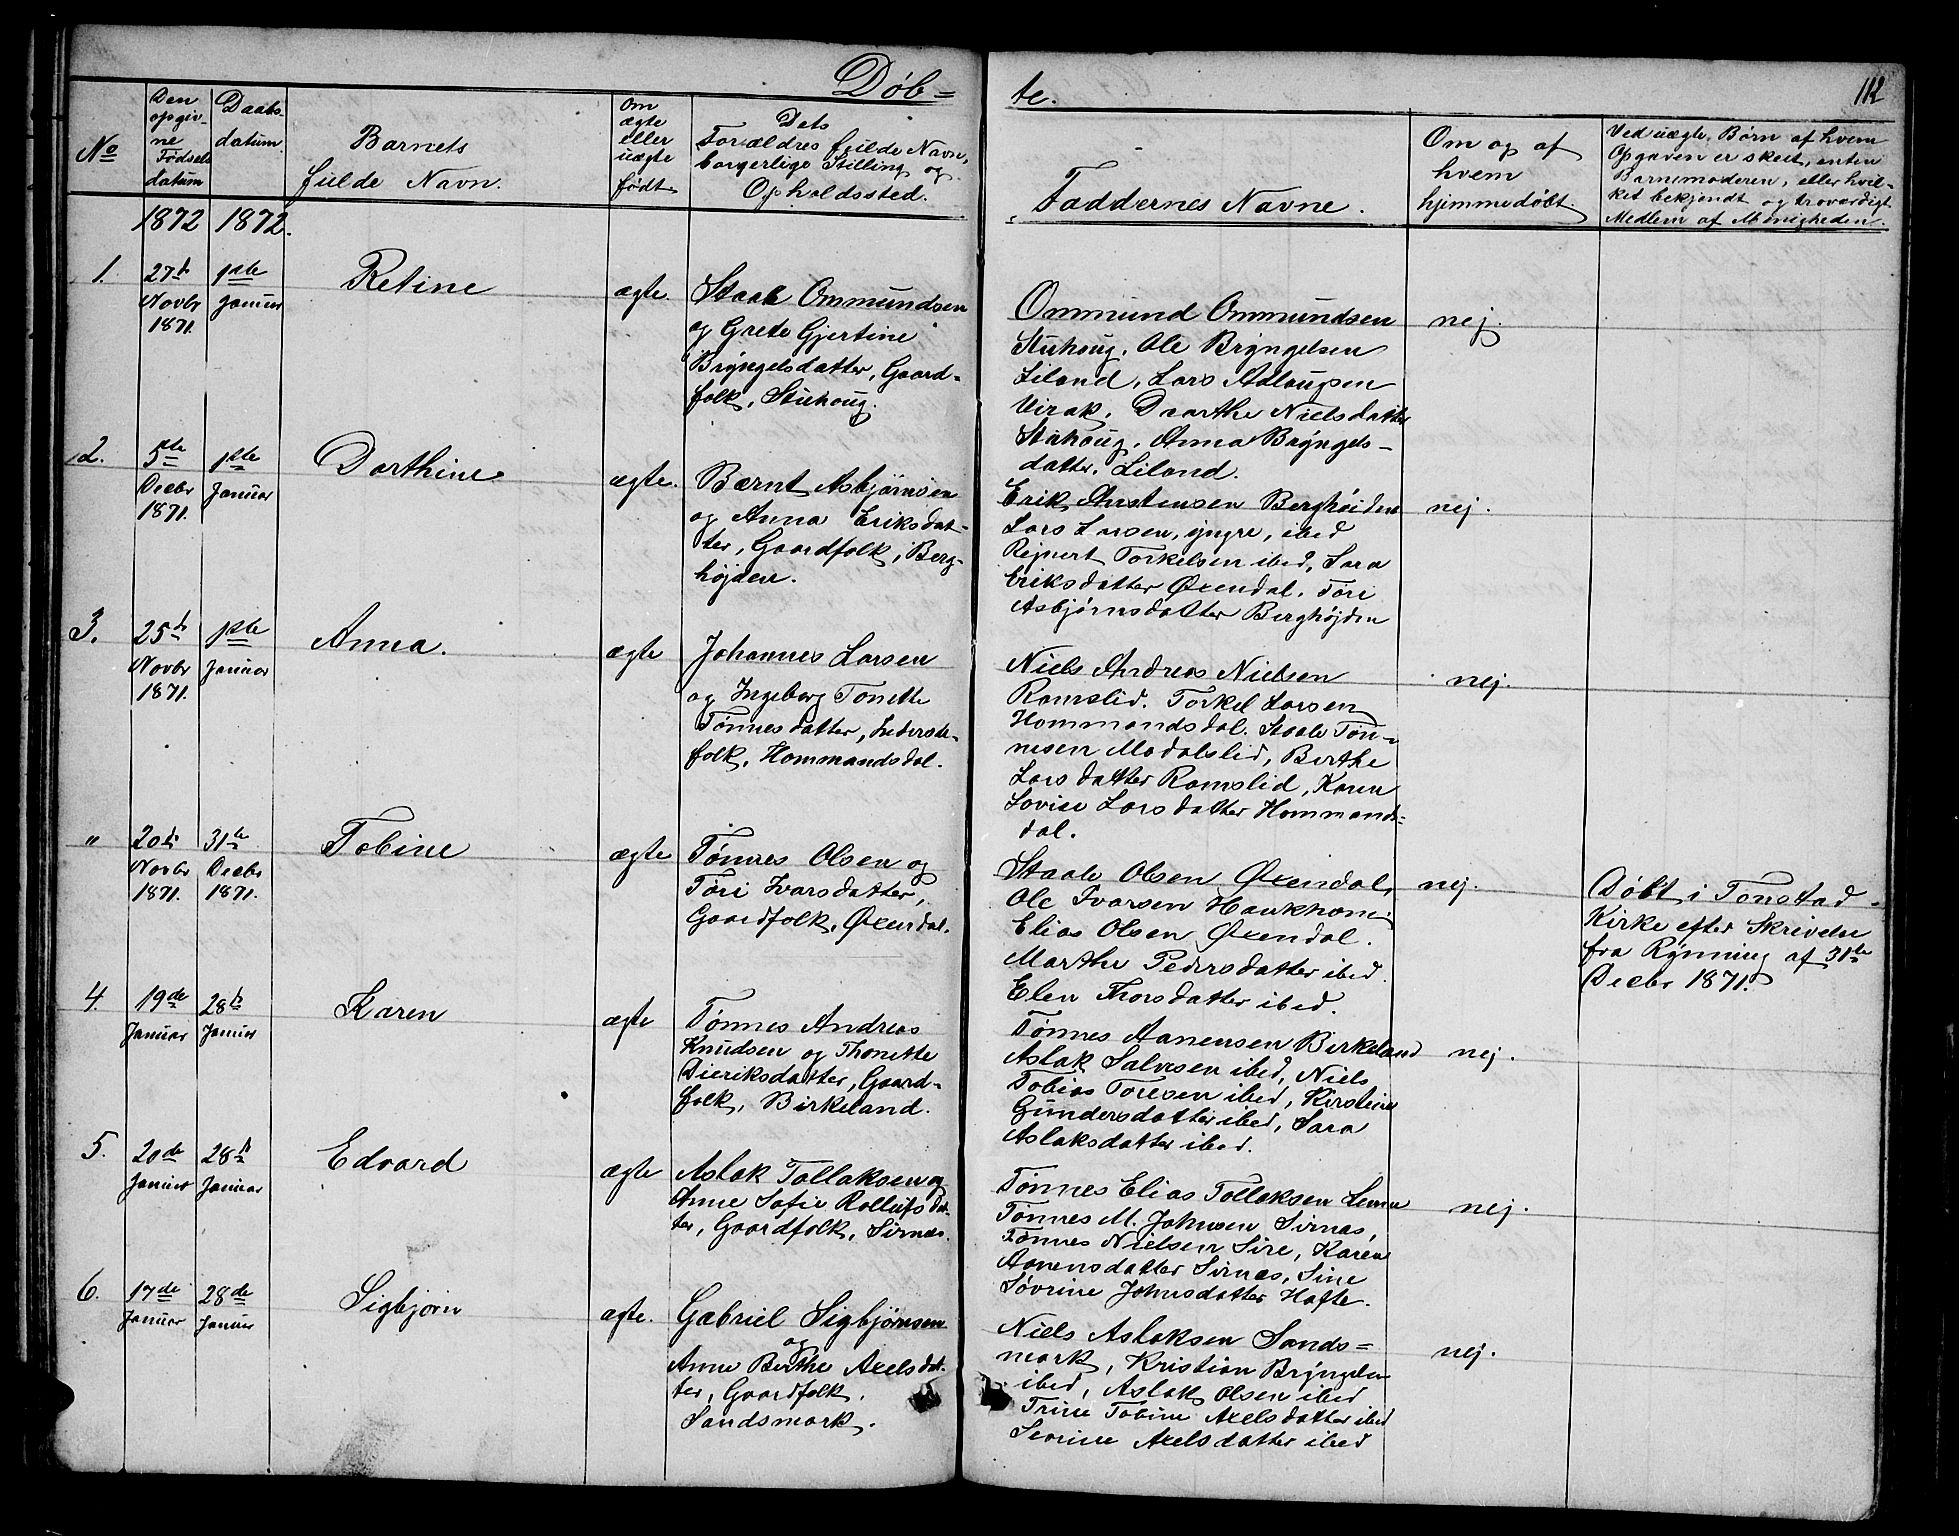 Døb=
te.
112
No
Den opgivne Fødselsdatum
Daabsdatum.
Barnets fulde Navn.
Om ægte eller uægte født
Dets Forældres fulde Navn, borgerlige Stilling og Opholdssted.
Faddernes Navne.
Om og af hvem hjemmedøbt.
Ved uægte Børn af hvem
Opgaven er skeet, enten
Barnemoderen, eller hvil-
ket bekjendt og troværdigt
Medlem af Menigheden.
1872 1872.
1.
27de Novbr 1871.
1ste Januar
Retine
ægte.
Staale Ommundsen
og Grete Gjertine
Brÿngelsdatter, Gaard-
folk, Stuhoug.
Ommund Ommundsen
Stuhoug. Ole Brÿngelsen
Liland, Lars Adlougsen
Virak, Daarthe Nielsdatter
Stuhoug, Anna Brÿngels-
datter, Liland.
nej.
2.
5te Decbr 1871.
1ste Januar
Dorthine
ægte.
Bærnt Asbjørnsen
og Anna Eriksdat-
ter, Gaardfolk, Berg-
højden.
Erik Christensen Berghøiden
Lars Larsen, yngre, ibed
Rejnert Torkelsen ibed, Sara
Eriksdatter Øxendal, Tøri
Asbjørnsdatter Berghøjden
nej.
3.
25de Novbr 1871.
1ste Januar
Anna.
ægte
Johannes Larsen
og Ingeborg Tonette
Tønnesdatter, Inderste-
folk, Hommandsdal.
Niels Andreas Nielsen
Ramslid. Torkel Larsen
Hommandsdal. Staale Tøn-
nesen Modalslid, Berthe
Larsdatter Ramslid, Karen
Lovise Larsdatter Hommands-
dal.
nej.
"
20de Novbr 1871.
31te Decbr 1871.
Tobine
ægte
Tønnes Olsen og
Tøri Ivarsdatter,
Gaardfolk, Øxendal.
Staale Olsen Øxendal,
Ole Ivarsen Haukhom
Elias Olsen Øxendal.
Marthe Pedersdatter ibed.
Elen Thorsdatter ibed.
nej.
Døbt i Tonstad
Kirke efter Skrivelse
fra Rÿnning af 31te
Decbr 1871.
4.
19de Januar
28de Januar
Karen
ægte
Tønnes Andreas
Knudsen og Thonette
Dieriksdatter, Gaard-
folk, Birkeland.
Tønnes Aanensen Birkeland
Aslak Salvesen ibed, Niels
Tobias Toresen ibed, Kirstine
Gundersdatter ibed, Sara
Aslaksdatter ibed.
nej.
5.
20de Januar
28de Januar
Edvard
ægte
Aslak Tollaksen og
Anne Sofie Rollufsdat-
ter, Gaardfolk, Sirnæs.
Tønnes Elias Tollaksen
Tønnes M. Johnsen Sirnæs,
Tønnes Nielsen Sire, Karen
Aanensdatter Sirnæs, Sine
Søvrine Johnsdatter Hafte.
nej.
6.
17de Januar
28de Januar
Sigbjørn
ægte.
Gabriel Sigbjørnsen
og
Anne Berthe Axelsdat-
ter, Gaardfolk,
Sandsmark.
Niels Aslaksen Sands=
mark, Kristian Brÿngelsen
ibed, Aslak Olsen ibed
Trine Tobine Axelsdatter ibed
Severine Axelsdatter ibed
nej.